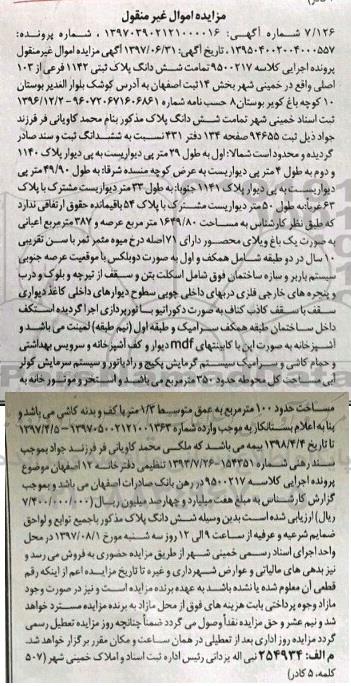 مزایده اموال غیر منقول
۷/۱۲۶ شماره آگهی: ۱۳۹۷۰۳۹۰۲۱۲۱۰۰۰۰۱۶ ، شماره پرونده:
۱۳۹۵۰۴۰۰۲۰۰۴۰۰۰۵۵۷ ، تاریخ آگهی: ۱۳۹۷/۰۶/۳۱ آگهی مزایده اموال غیرمنقول
پرونده اجرایی کلاسه ۹۵۰۰۲۱۷ تمامت شش دانگ پلاک ثبتی ۱۱۴۲ فرعی از ۱۰۳
اصلی واقع در خمینی شهر بخش ۱۴ ثبت اصفهان به آدرس کوشک بلوار الغدیر بوستان
۱۰ کوچه باغ کویر بوستان۸ حسب نامه شماره ۹۶۰۷۲۰۶۷۱۶۰۶۸۶۱ - ۱۳۹۶/۱۲/۲
ثبت اسناد خمینی شهر تمامت شش دانگ پلاک مذکور بنام محمد کاویانی فر فرزند
جواد ذیل ثبت ۹۴۶۵۵ صفحه ۱۳۴ دفتر ۴۳۱ نسبت به ششدانگ ثبت و سند صادر
گردیده و محدود است شمالا: اول به طول ۲۹ متر پی دیواریست به پی دیوار پلاک ۱۱۴۰
و دوم به طول ۴ متر پی دیواریست به عرض کوچه منسده شرقا: به طول ۴۹/۹۰ متر پی
دیواریست به پی دیوار پلاک ۱۱۴۱ جنوبا: به طول ۳۳ متر دیواریست مشترک با پلاک
۶۳ غربا: به طول ۵۰ متر دیواریست مشترک با پلاک ۵۴ باقیمانده حقوق ارتفاقی ندارد
که طبق نظر کارشناس به مساحت ۱۶۴۹/۸۰ متر مربع عرصه و ۳۸۷ مترمربع اعیانی
به صورت یک باغ ویلای محصور دارای ۷۱ اصله درخ میوه مثمر ثمر با سن تقریبی
۱۰ سال در دو طبقه شامل همکف و اول به صورت دوبلکس با موقعیت عرصه جنوبی
سیستم باربر و سازه ساختمان فوق شامل اسکلت بتن و سقف از تیرچه و بلوک و درب
و پنجره های خارجی فلزی دربهای داخلی چوبی سطوح دیوارهای داخلی کاغذ دیواری
سقف با سقف کاذب کناف به صورت دکوراتیو با نورپردازی اجرا گردیده است کف
داخل ساختمان طبقه همکف سرامیک و طبقه اول (نیم طبقه) لمینت می باشد و
آشپزخانه به صورت اپن با کابینتهای mdf دیوار و کف آشپزخانه و سرویس بهداشتی
و حمام کاشی و سرامیک سیستم گرمایش پکیج و رادیاتور و سیستم سرمایش کولر
آبی مساحت کل محوطه حدود ۳۵۰ مترمربع می باشد و استخر و موتور خانه به
مساحت حدود ۱۰۰ مترمربع به عمق متوسط ۱/۳ متر با کف و بدنه کاشی می باشد و
بنا به اعلام بستانکار به موجب وارده شماره ۱۳۹۷۰۵۰۰۲۱۲۱۰۰۱۳۶۳ - ۱۳۹۷/۴/۵
تا تاریخ ۱۳۹۸/۴/۴ بیمه می باشد که ملکی محمد کاویانی فر فرزند جواد بموجب
سند رهنی شماره ۱۵۴۳۵۱ - ۱۳۹۳/۷/۲۶ تنظیمی دفتر خانه ۱۲ اصفهان موضوع
پرونده اجرایی کلاسه ۹۵۰۰۲۱۷ در رهن بانک صادرات اصفهان می باشد و بموجب
گزارش کارشناس به مبلغ هفت میلیارد و چهارصد میلیون ریال (۷/۴۰۰/۰۰۰/۰۰۰
ریال) ارزیابی شده است بدین وسیله شش دانگ پلاک مذکور باجمیع توابع و لواحق
ضمایم شرعیه و عرفیه از ساعت ۹ الی ۱۲ روز سه شنبه مورخ ۱۳۹۷/۰۸/۱ در محل
واحد اجرای اسناد رسمی خمینی شهر از طریق مزایده حضوری به فروش می رسد و
نیز بدهی های مالیاتی و عوارض شهرداری و غیره تا تاریخ مزایده اعم از اینکه رقم
قطعی آن معلوم شده یا نشده باشد به عهده برنده مزایده است و نیز در صورت وجود
مازاد وجوه پرداختی بابت هزینه های فوق از محل مازاد به برنده مزایده مسترد خواهد
شد و نیم عشر و حق مزایده نقداً وصول می گردد ضمناً چنانچه روز مزایده تعطیل رسمی
گردد مزایده روز اداری بعد از تعطیلی در همان ساعت و مکان مقرر برگزار خواهد شد.
م الف: ۲۵۴۹۳۴ نبی اله یزدانی رئیس اداره ثبت اسناد و املاک خمینی شهر (۵۰۷
کلمه، ۵ کادر)